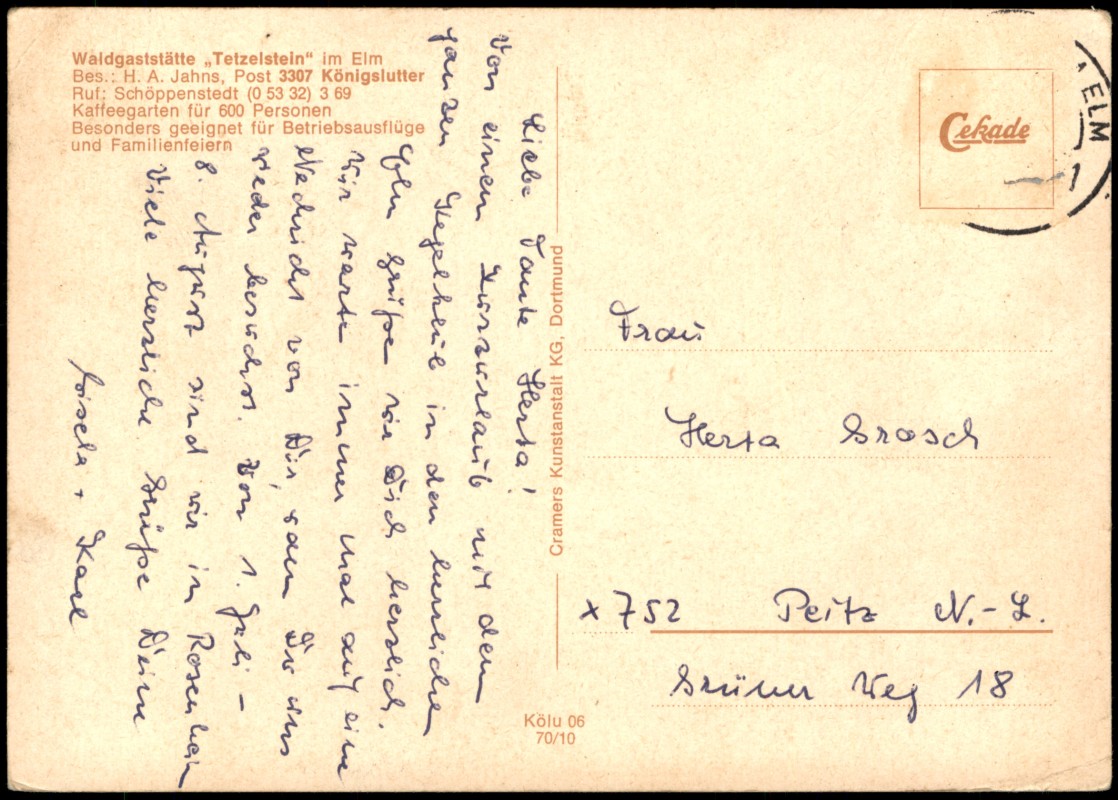 Waldgaststätte „Tetzelstein" im Elm
Bes.: H. A. Jahns, Post 3307 Königslutter
Ruf: Schöppenstedt (0 53 32) 3 69
Kaffeegarten für 600 Personen
Besonders geeignet für Betriebsausflüge
und Familienfeiern
Liebe Tante Herta!
Von einem Kurzurlaub mit dem
ganzen Kegelklub in den herrlichen
Elm grüße wir Dich herzlich.
Wir warte immer mal auf eine
Nachricht von Dir, wann Du uns
wieder besuchst. Vom 1. Juli –
8. August sind wir in Rosenhain
Viele herzliche Grüße Deine
Gisela + Karl
Cramers Kunstanstalt KG, Dortmund
Kölu 06
70/10
Cekade
ELM
1
Frau
Herta Grosch
x752 Peitz N.-L.
Grüner Weg 18